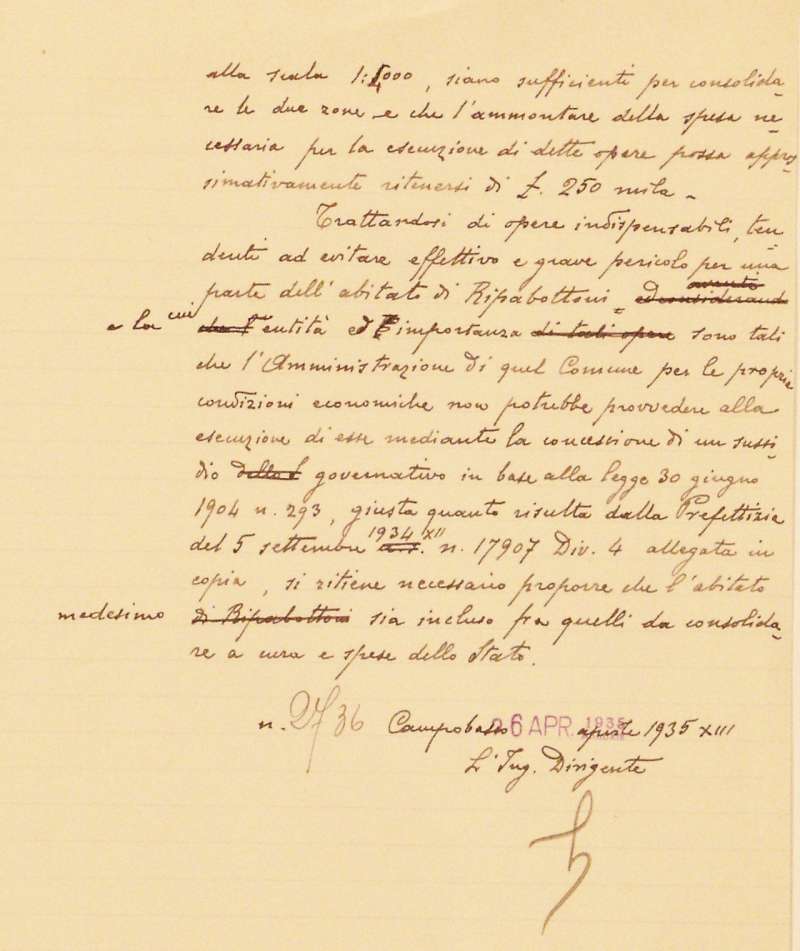 alla scala 1:4000, siano sufficienti per consolida-
re le due zone e che l'ammontare della spesa ne-
cessaria per la esecuzione di dette opere possa appros
simativamente ritenersi di £. 250 mila.
Trattandosi di opere indispensabili, ten
denti ad evitare effettivo e grave pericolo per una
avente
parte dell'abitato di Ripabottoni - ed considerando
e la cui che l'entità ed importanza di tali opere sono tali
che l'Amministrazione di quel Comune per le proprie
condizioni economiche non potrebbe provvedere alla
esecuzione di esse mediante la concessione di un sussi-
dio dello governativo in base alla legge 30 giugno
1904 n. 293, giusta quanto risulta dalla Prefettizia
1934 XII
del 5 settembre a.s. n. 17907 Div. 4 allegata in
copia, si ritiene necessario proporre che l'abitato
medesimo di Ripabottoni sia incluso fra quelli da consolida-
re a cura e spese dello Stato.
n. 2736 Campobasso 26 APR. 1935 aprile 1935 XIII
L'Ing. Dirigente